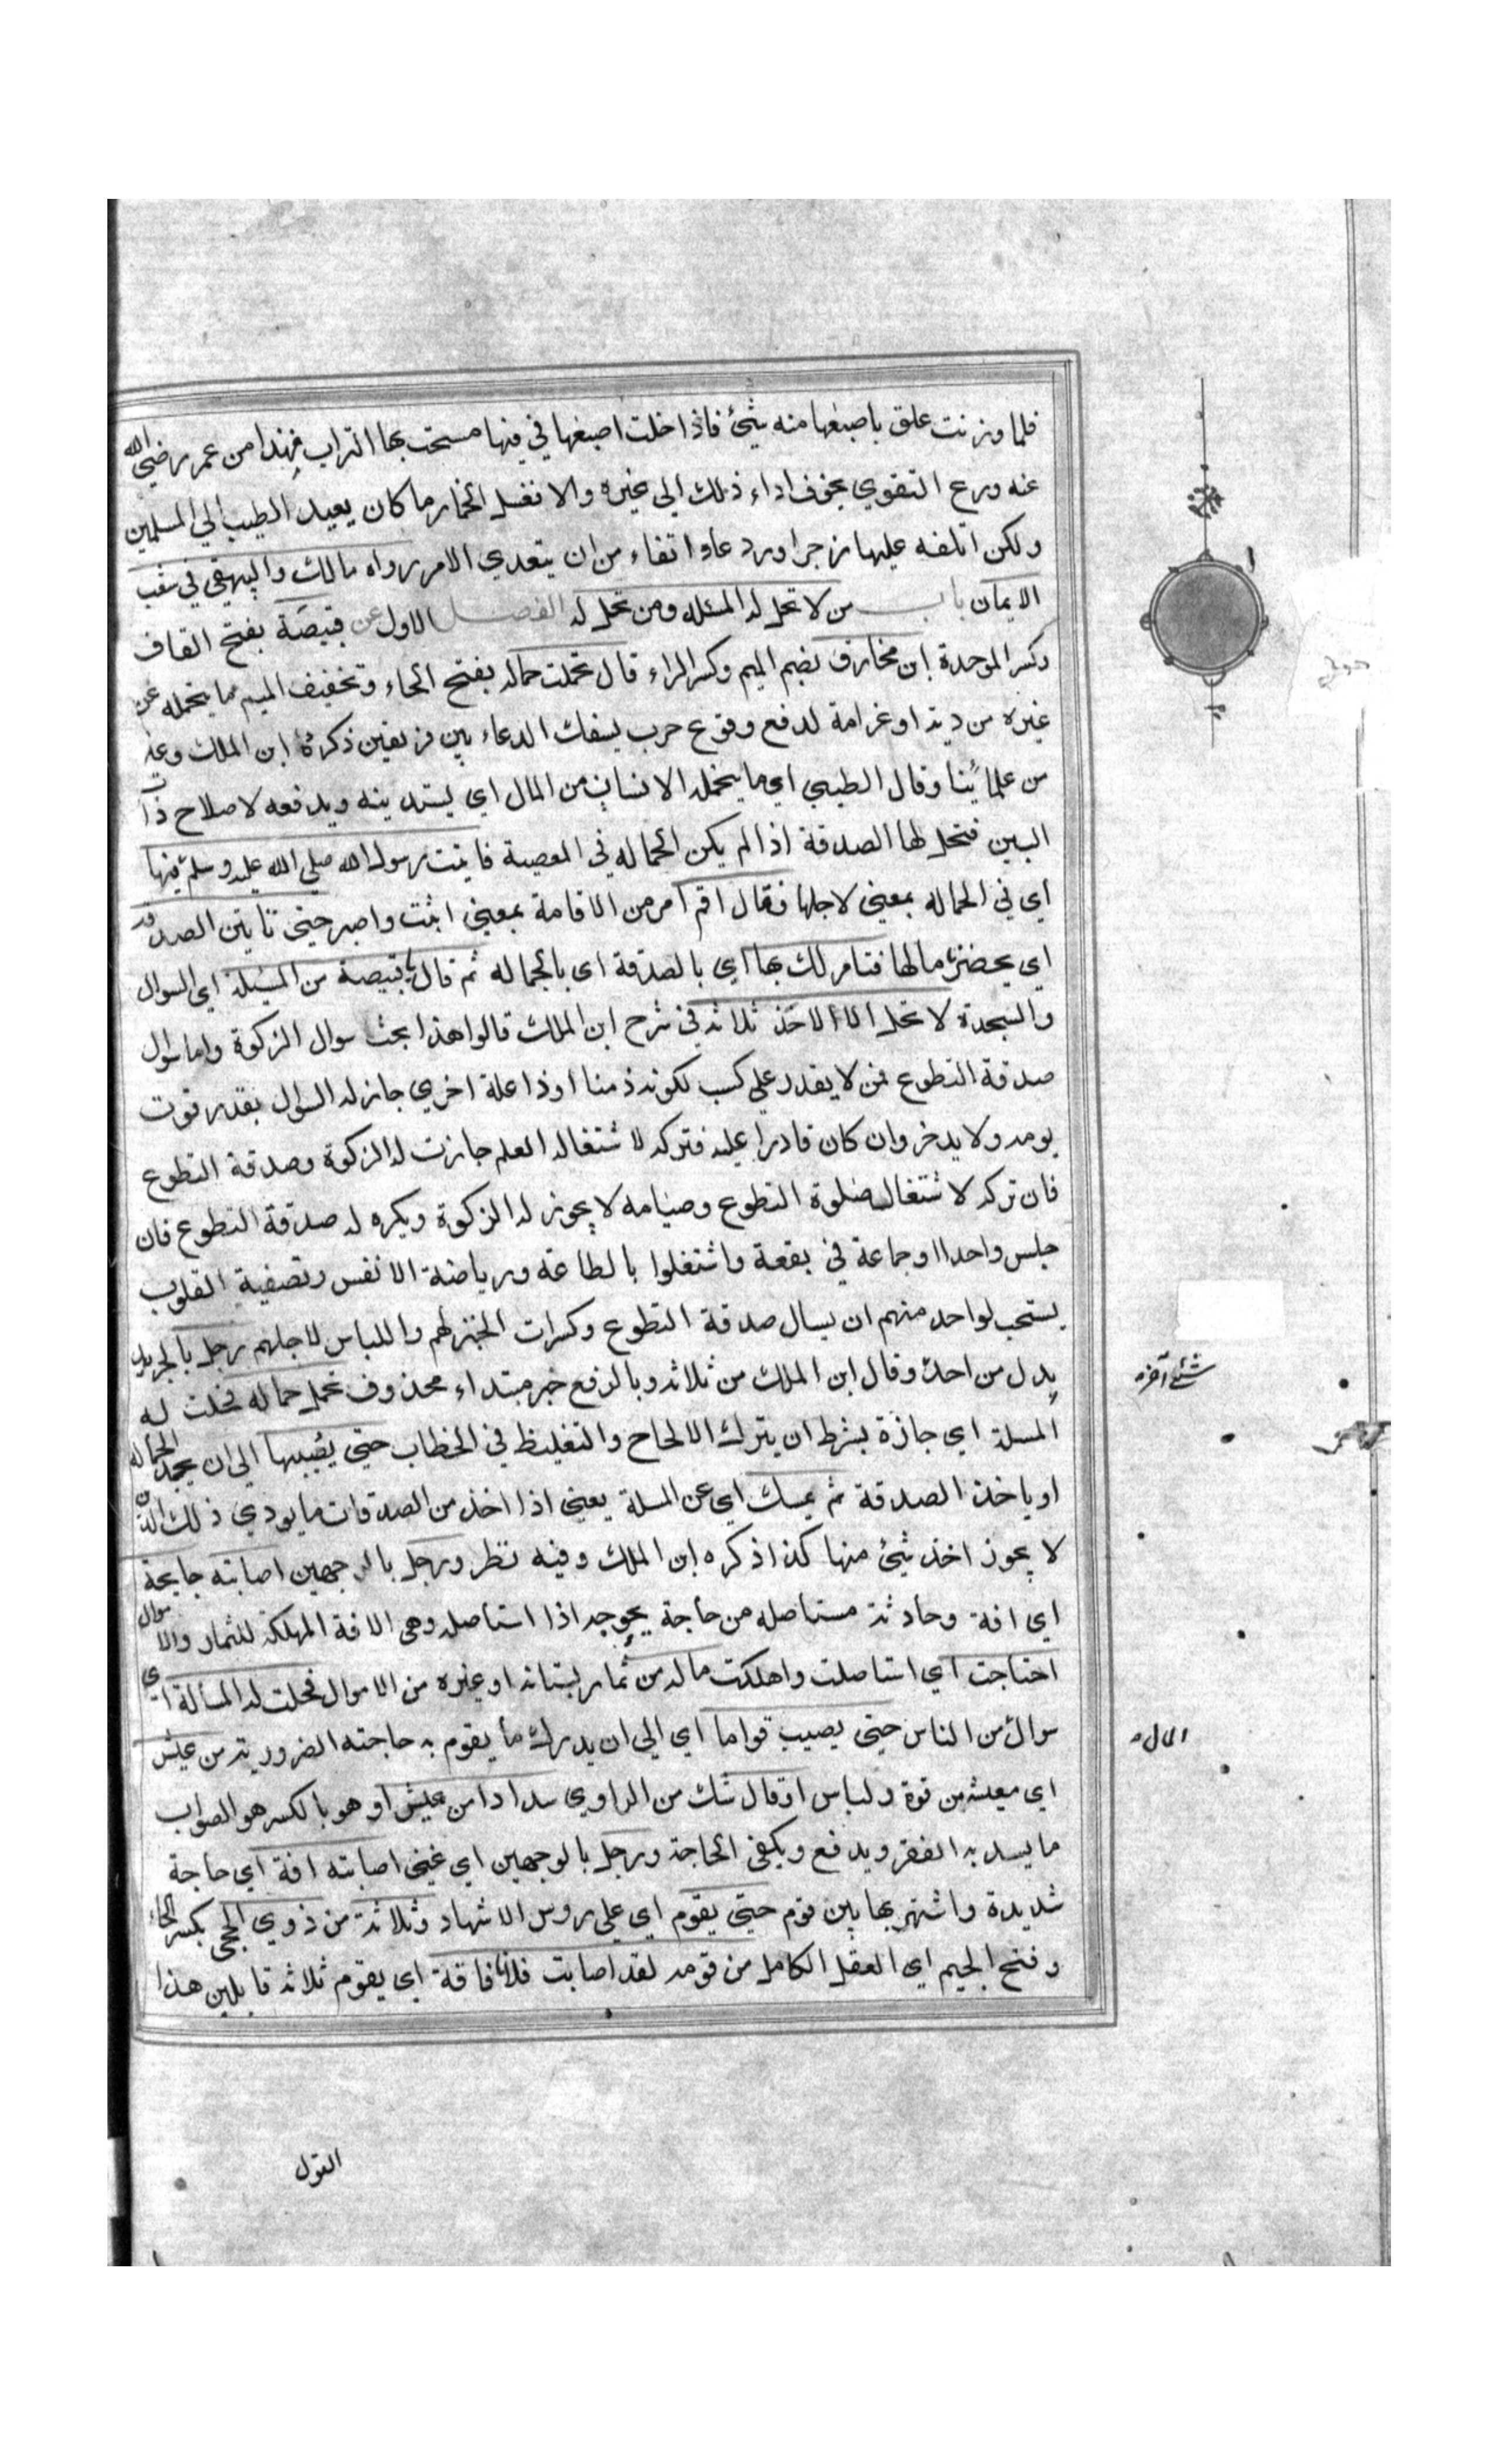 فلما وزنت علق باصبعها منه شئ فاذا خلت اصبعها في فيها مسحت بها التراب فهذا من عمر رضي الله
عنه ورع التقوي يخوف اداء ذلك الي غيره والا نغسل الخمار ما كان يعيد الطيب الي المسلمين
ولكن اتلفه عليها زجرا وردعا واتقاء من ان يتعدي الامر رواه مالك والبيهقي في شعب
الايمان باب من لا تحل له المسٔله ومن تحل له الفصل الاول عن قبيصَة بفتح القاف
وكسر الموحدة ابن مخارق بضم الميم وكسر الراء قال تحملت حماله بفتح الحاء وتخفيف الميم ما يتحمله عن
غيره من دية او غرامة لدفع وقوع حرب يسفك الدماء بين فريقين ذكره ابن الملك وغيره
من علمائنا وقال الطيبي اي ما يتحمله الانسان من المال اي يستدينه ويدفعه لاصلاح ذات
البين فتحل لها الصدقة اذا لم يكن الحماله في المعصية فاتيت رسول الله صلي الله عليه وسلم فيها
اي في الحماله بمعني لاجلها فقال اقم امر من الاقامة بمعني اثبت واصبر حتي تاتين الصدقه
اي يحضرنا مالها فنامر لك بها اي بالصدقة اي بالحماله ثم قال يا قبيصة من المسٔيلة اي السوال
والسجدة لا تحل الا لاحَد ثلاثه في شرح ابن الملك قالوا هذا بحث سوال الزكوة واما سوال
صدقة التطوع فمن لا يقدر علي كسب لكونه ذمنا او ذا علة اخري جاز له السوال بقدر قوت
يومه ولا يدخر وان كان قادرا عليه فتركه لاشتغاله العلم جازت له الزكوة وصدقة التطوع
فان تركه لاشتغاله بصلوة التطوع وصيامه لا يجوز له الزكوة ويكره له صدقة التطوع فان
جلس واحدا او جماعة في بقعة واشتغلوا بالطاعة ورياضة الانفس وتصفية القلوب
يستحب لواحد منهم ان يسال صدقة التطوع وكسرات الخبز لهم واللباس لاجلهم رجل بالجر بدل
بدل من احد وقال ابن الملك من ثلاثه وبالرفع خبر مبتداء محذوف تحمل حماله فحلت له
المسلة اي جازة بشرط ان يترك الالحاح والتغليظ في الخطاب حتي يصيبها الي ان يجد الحماله
او ياخذ الصدقة ثم يمسك اي عن المسلة يعني اذا اخذ من الصدقات ما يودي ذلك الدين
لا يجوز اخذ شئ منها كذا ذكره ابن الملك وفيه نظر ورجل بالوجهين اصابته جايحة
اي افة وحادثة مستاصله من حاجة يحوجه اذا استاصله وهي الافة المهلكة للثمار والاموال
احتاجت اي استاصلت واهلكت ماله من ثمار بستانه او غيره من الاموال فحلت له المسألة اي
سوال من الناس حتي يصيب قواما اي الي ان يدرك ما يقوم به حاجته الضرورية من عيش
اي معيشة من قوة ولباس او قال شك من الراوي سدادا من عيش او هو بالكسر هو الصواب
ما يسد به الفقر ويدفع ويكفي الحاجة ورجل بالوجهين اي غني اصابته افة اي حاجة
شديدة واشتهر بها بين قوم حتي يقوم اي علي روس الاشهاد وثلاثة من ذوي الحجي بكسر الحاء
وفتح الجيم اي العقل الكامل من قومه لقد اصابت فلانا فاقة اي يقوم ثلاثه قايلين هذا
القول
شئ آخره
المال